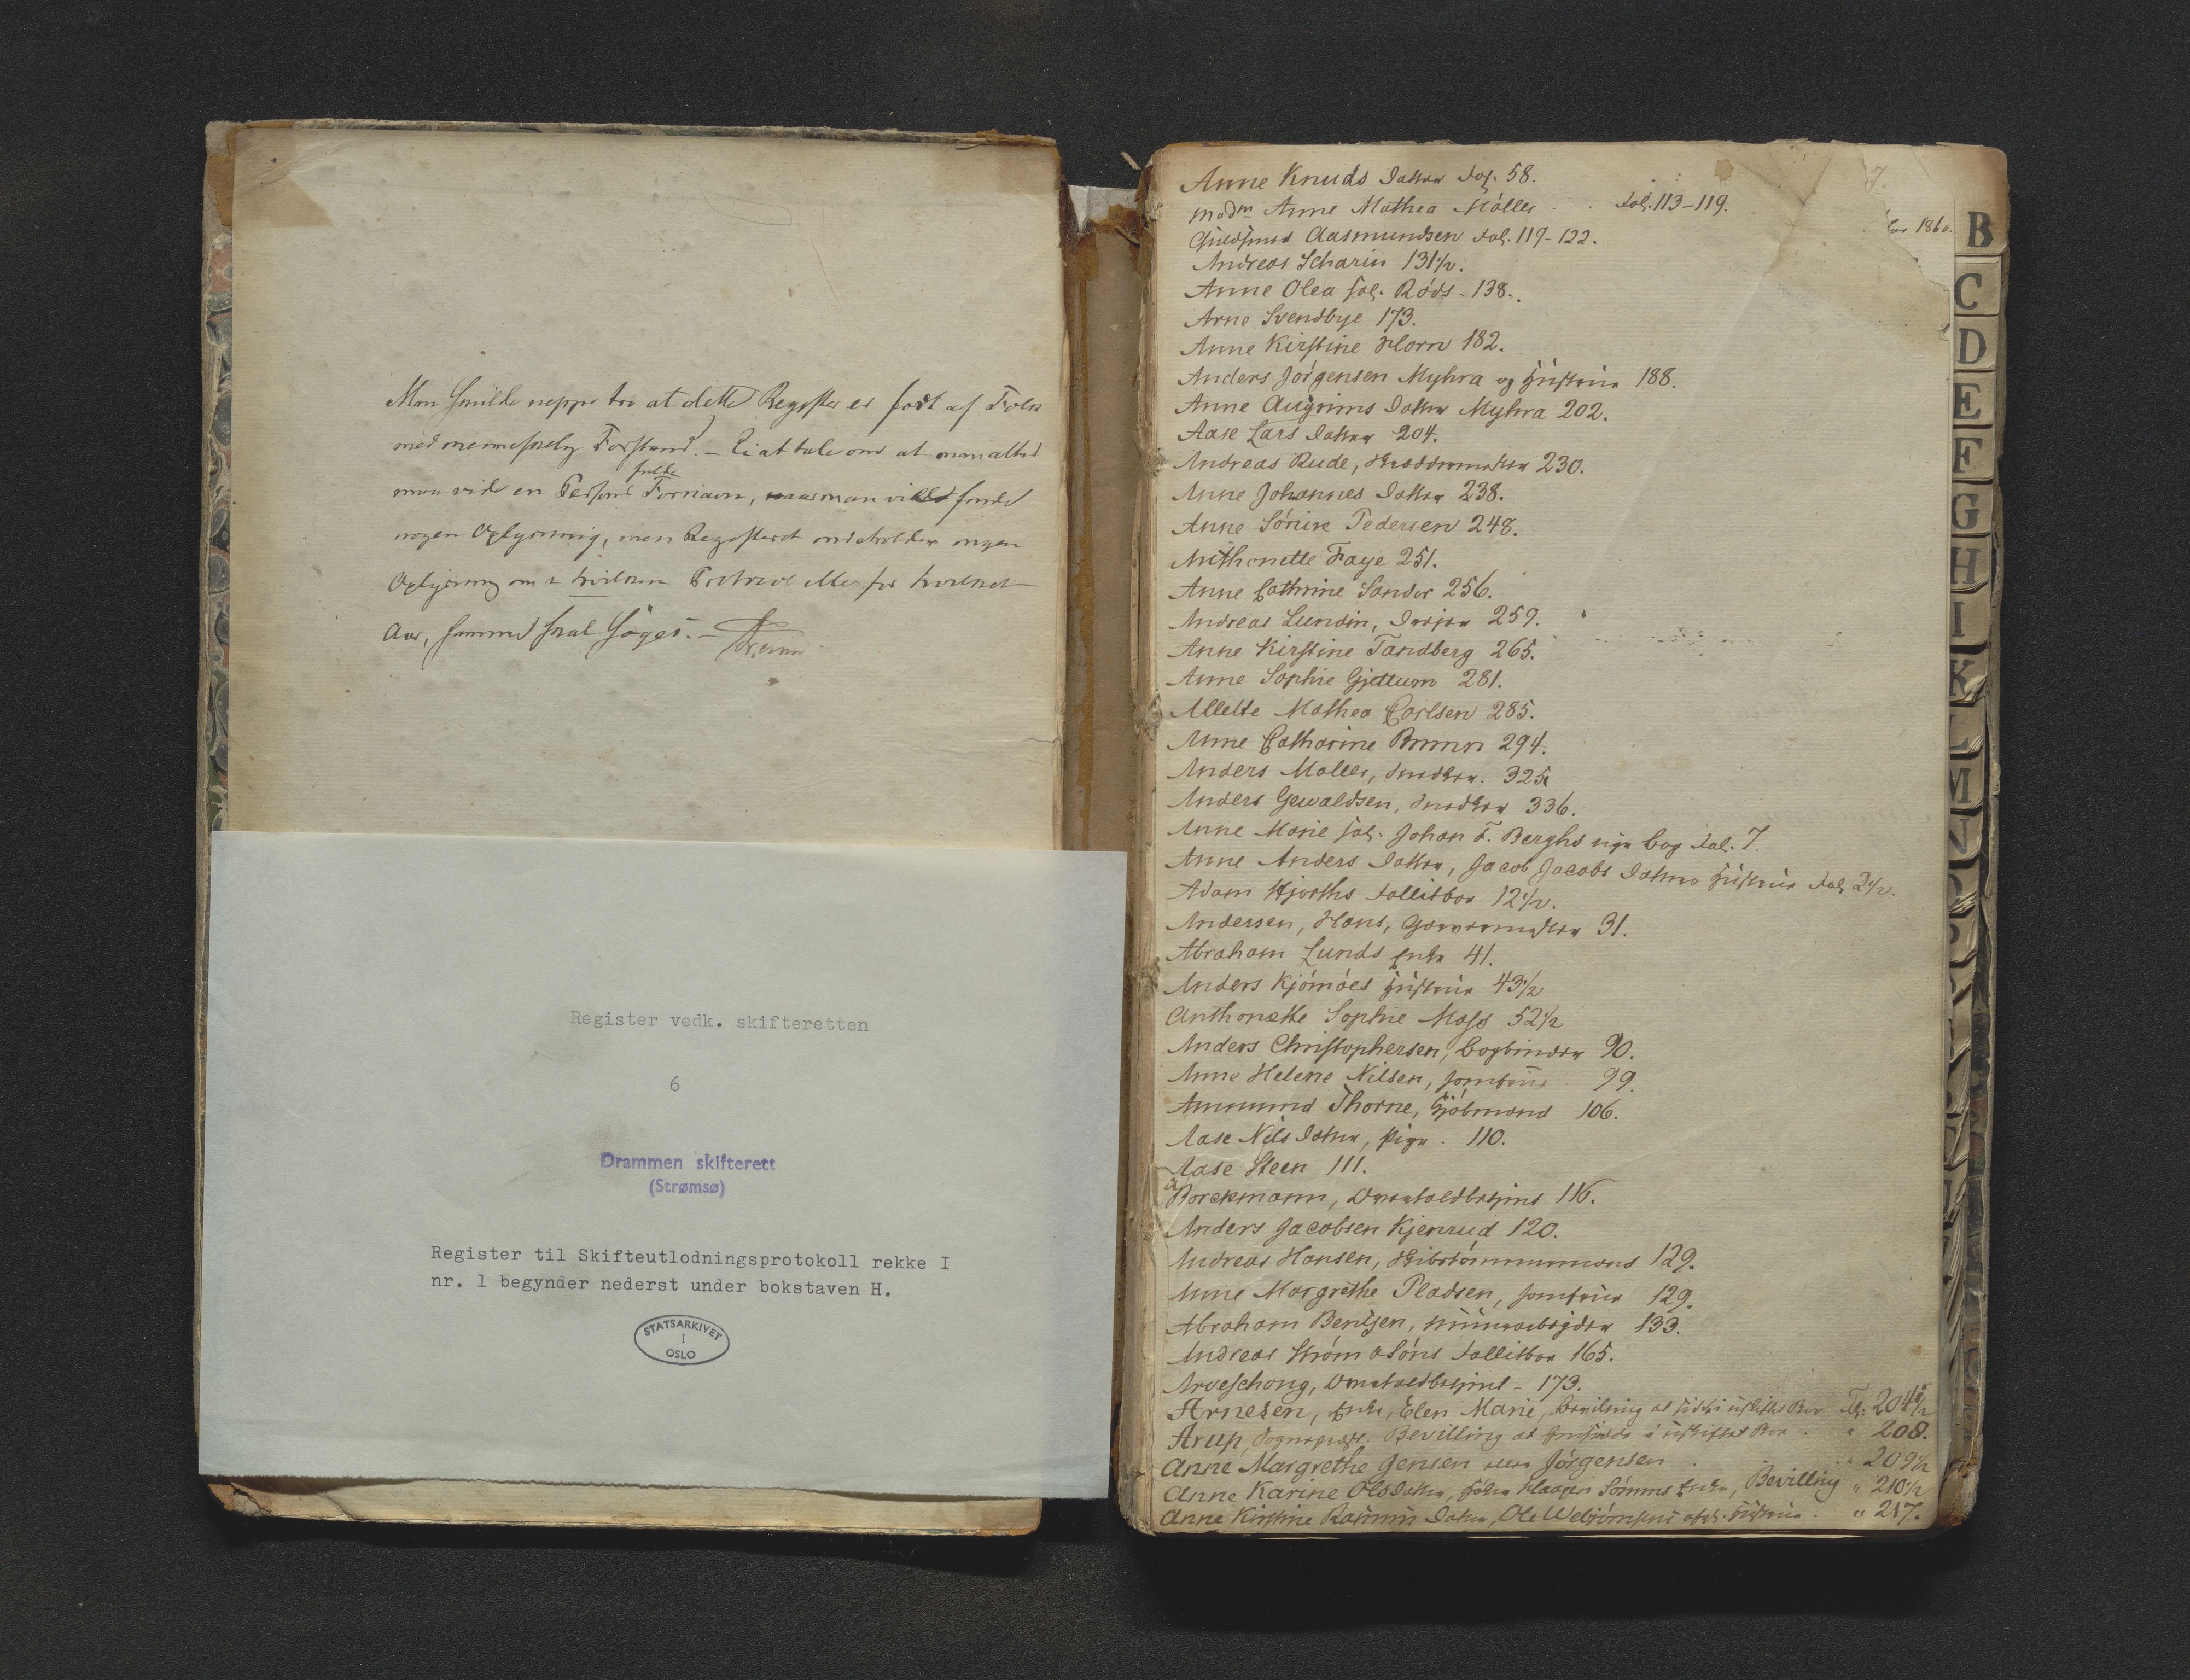 Man skulde neppe tro at dette Register er ført af Folk
med menneskelig Forstand. – Ei at tale om at man altid
maa vide en Persons fulde Fornavn, naar man vil finde
nogen Oplysning, men Registeret indeholder ingen
Oplysning om i hvilken Protocol eller for hvilket
Aar, samme skal søges. –
Register vedk. skifteretten
6
Drammen skifterett
(Strømsø)
Register til Skifteutlodningsprotokoll rekke I
nr. 1 begynder nederst under bokstaven H.
STATSARKIVET
I
OSLO
7.
1860.
Anne Knuds Datter Fol. 58.
Madm Anne Mathea Møller Fol. 113–119.
Guldsmed Aasmundsen Fol. 119–122.
Andreas Scharin 131½.
Anne Olea sal. Røds – 138.
Arne Svendbye 173.
Anne Kirstine Horn 182.
Anders Jørgensen Myhra og Hustrue 188.
Anne Augrims Datter Myhra 202.
Aase Lars Datter 204.
Andreas Rude, 230.
Anne Johannes Datter 238.
Anne Sørine Pedersen 248.
Anthonette Faye 251.
Anne Cathrine Sander 256.
Andreas Lundin, 259.
Anne Kirstine Tandberg 265.
Anne Sophie Gjettum 281.
Allette Mathea Carlsen 285.
Anne Catharine Brunn 294.
Anders Møller, Snedker. 325
Anders Gewaldsen, Snedker 336.
Anne Marie sal. Johan F. Berghs nye Bog Fol. 7.
Anne Anders Datter, Jacob Jacobs Datter Hustrue Fol. 2½.
Adam Hjorths Fallitboe 12½.
Andersen, Hans, Garvermester 31.
Abraham Lunds Enke 41.
Anders Kjømøes Hustrue 43½
Anthonette Sophie Moss 52½
Anders Christophersen, Bogbinder 90.
Anne Helene Nilsen, Jomfrue 99.
Ammund Thorne, Kjøbmand 106.
Aase Nils Datter, Pige. 110.
Aase Steen 111.
Borckmann, Overtoldbetjent 116.
Anders Jacobsen Kjenrud 120.
Andreas Hansen, Skibstømmermand 129.
Anne Margrethe Pladsen, Jomfrue 129.
Abraham Bentsen, Muurarbeider 133.
Andreas Strøm & Søns Fallitboe 165.
Arveschong, Overtoldbetjent – 173.
Arnesen, Enke, Elen Marie, Bevilling at sidde i uskiftet Boe Fol. 204½
Arup, Sogneprest. Bevilling at hensidde i uskiftet Boe. " 208.
Anne Margrethe Jensen eller Jørgensen " 209½
Anne Karine Olsdatter, Enke, Bevilling " 210½
Anne Kirstine Rasmus Datter, Ole Hustrue. " 217.